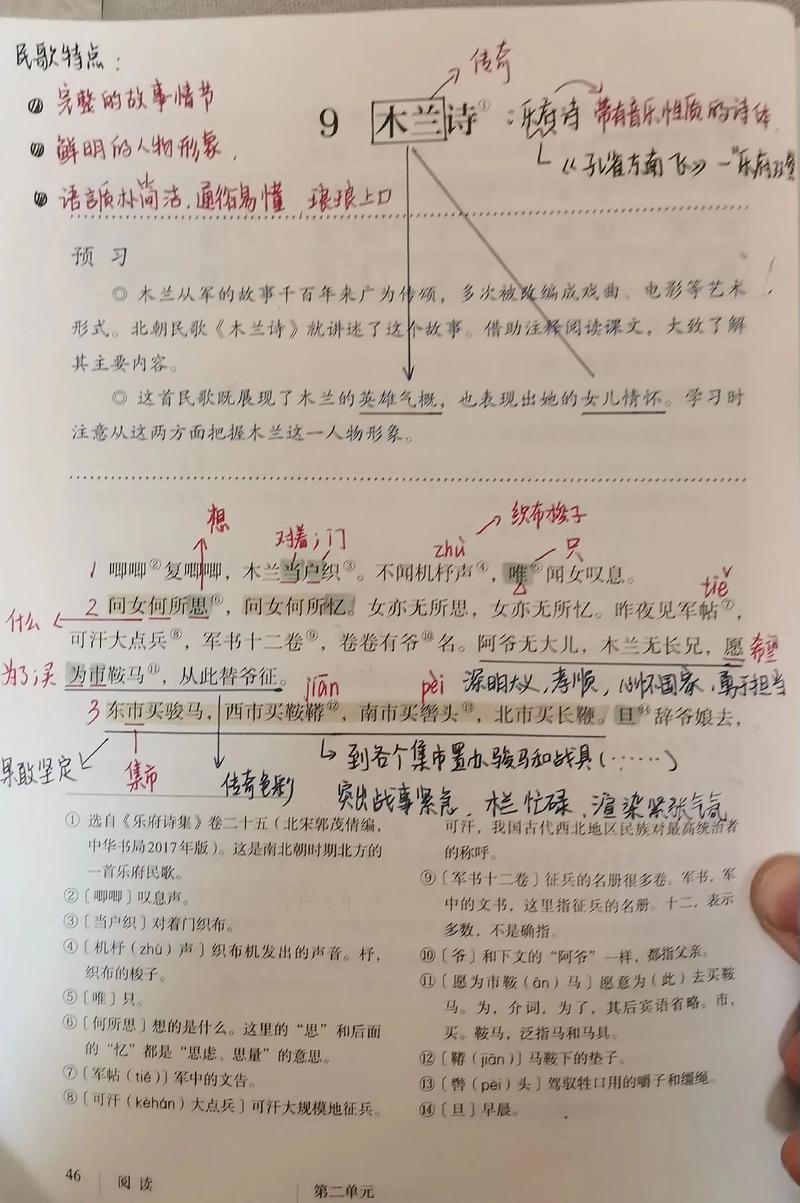 民歌特点：
① 完整的故事情节
② 鲜明的人物形象，
③ 语言质朴简洁，通俗易懂 琅琅上口
传奇
9 木兰诗①：乐府诗 带有音乐性质的诗体
《孔雀东南飞》—“乐府双璧
预习
◎ 木兰从军的故事千百年来广为传颂，多次被改编成戏曲、电影等艺术
形式。北朝民歌《木兰诗》就讲述了这个故事。借助注释阅读课文，大致了解
其主要内容。
◎ 这首民歌既展现了木兰的英雄气概，也表现出她的女儿情怀。学习时
注意从这两方面把握木兰这一人物形象。
想
对着；门
zhù
织布梭子
只
1 唧唧②复唧唧，木兰当户织③。不闻机杼声④，唯⑤闻女叹息。
tiě
2 问女何所思⑥，问女何所忆。女亦无所思，女亦无所忆。昨夜见军帖⑦，
什么
可汗大点兵⑧，军书十二卷⑨，卷卷有爷⑩名。阿爷无大儿，木兰无长兄，愿
希望
为了；买
为市鞍马⑪，从此替爷征。
jiān
pèi
深明大义，孝顺，心怀国家，勇于担当
3 东市买骏马，西市买鞍鞯⑫，南市买辔头⑬，北市买长鞭。旦⑭辞爷娘去，
果敢坚定
集市
传奇色彩
到各个集市置办骏马和战具(……)
突出战事紧急、忙碌，渲染紧张气氛
① 选自《乐府诗集》卷二十五（北宋郭茂倩编，
中华书局2017年版）。这是南北朝时期北方的
一首乐府民歌。
②〔唧唧〕叹息声。
③〔当户织〕对着门织布。
④〔机杼（zhù）声〕织布机发出的声音。杼，
织布的梭子。
⑤〔唯〕只。
⑥〔何所思〕想的是什么。这里的“思”和后面
的“忆”都是“思虑、思量”的意思。
⑦〔军帖（tiě）〕军中的文告。
⑧〔可汗（kèhán）大点兵〕可汗大规模地征兵。
可汗，我国古代西北地区民族对最高统治者
的称呼。
⑨〔军书十二卷〕征兵的名册很多卷。军书，军
中的文书，这里指征兵的名册。十二，表示
多数，不是确指。
⑩〔爷〕和下文的“阿爷”一样，都指父亲。
⑪〔愿为市鞍（ān）马〕愿意为（此）去买鞍
马。为，介词，为了，其后宾语省略。市，
买。鞍马，泛指马和马具。
⑫〔鞯（jiān）〕马鞍下的垫子。
⑬〔辔（pèi）头〕驾驭牲口用的嚼子和缰绳。
⑭〔旦〕早晨。
46
阅读
第二单元